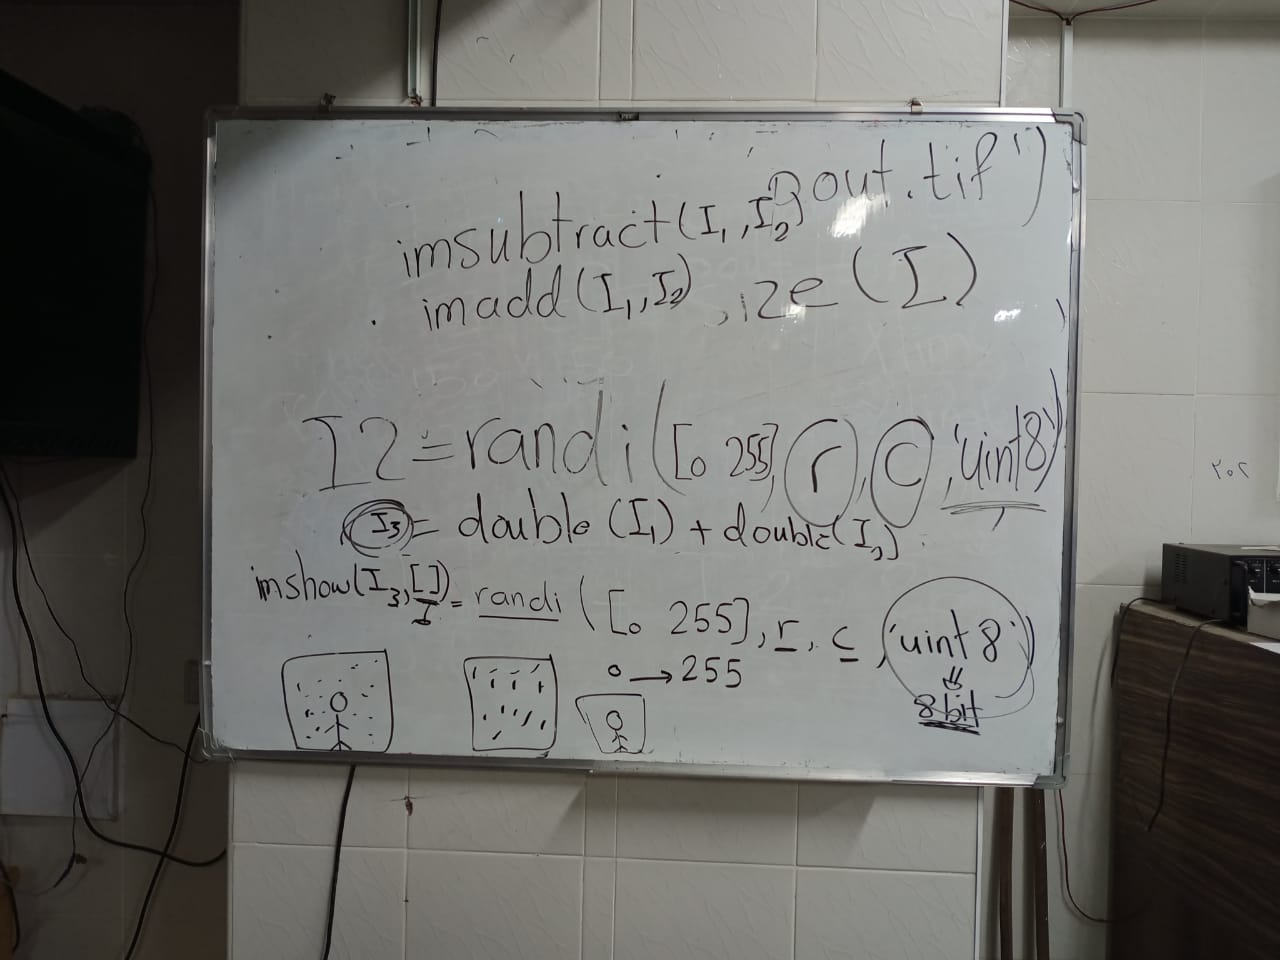 out.tif')
imsubtract(I₁,I₂)
imadd(I₁,I₂) ize(I)
I2=randi([0 255],r,c,'uint8')
I₃= double(I₁)+double(I₂)
imshow(I₃,[])
I = randi([0 255],r,c,'uint8')
0→255
8bit
٢٠٢